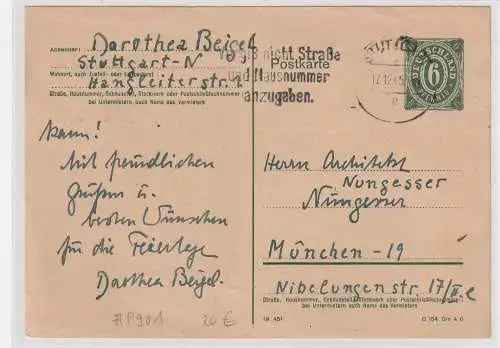 Absender: Dorothea Beigel
Stuttgart-N
Wohnort, auch Zustell- oder Leitpostamt
Hangleiterstr.
Straße, Hausnummer, Gebäudeteil, Stockwerk oder Postschließfachnummer
bei Untermietern auch Name des Vermieters
kann!
Mit freundlichen
Grüßen u.
besten Wünschen
für die Feiertage
Dorothea Beigel.
#P901 20 €
Vergiß nicht Straße
und Hausnummer
anzugeben.
Postkarte
STUTTG
17.12.45
e
DEUTSCHLAND
6
PFENNIG
Herrn Architekt
Nungesser
Nüngesser
München -19
Nibelungenstr. 17/II. e
Straße, Hausnummer, Gebäudeteil, Stockwerk oder Postschließfachnummer
bei Untermietern auch Name des Vermieters
19 451
C 154 Din A 6